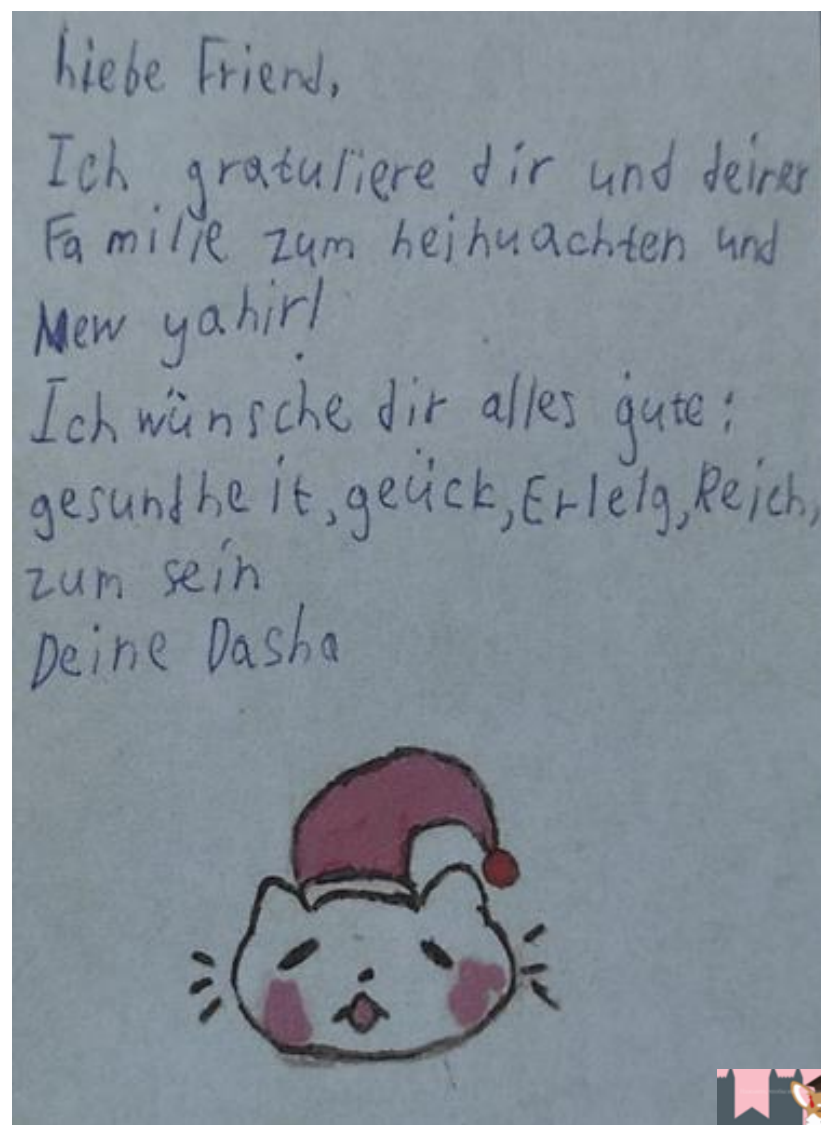 hiebe Friend,
Ich gratuliere dir und deiner
Familie zum heihuachten und
New yahir!
Ich wünsche dir alles gute:
gesundheit, geück, Erlelg, Reich,
zum sein
Deine Dasha